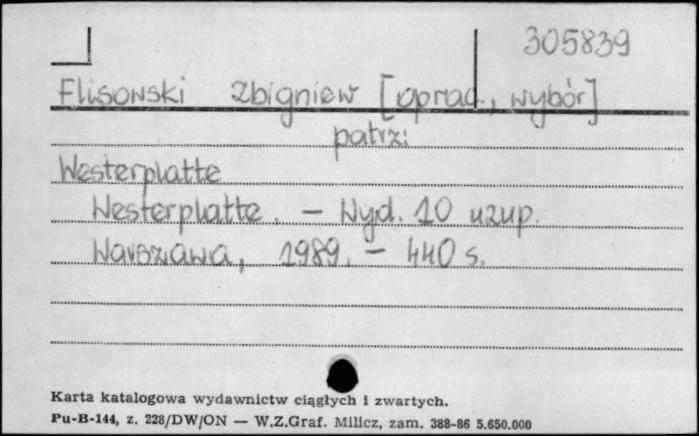 305839
Flisowski Zbigniew [oprac., wybór]
patrz:
Westerplatte
Westerplatte. – Wyd. 10 uzup.
Warszawa, 1989. – 440 s.
Karta katalogowa wydawnictw ciągłych i zwartych.
Pu-B-144, z. 228/DW/ON — W.Z.Graf. Milicz, zam. 388-86 5.650.000